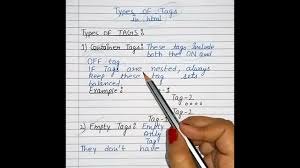 Types of Tags
in html
Types of TAGS:
1) Container Tags: These tags include
both the ON and
OFF tag
IF Tags are nested, always
keep these tag sets
balanced.
Example:
Tag-2
Tag-2
2) Empty Tags: Empty
only
Tag
They don't have